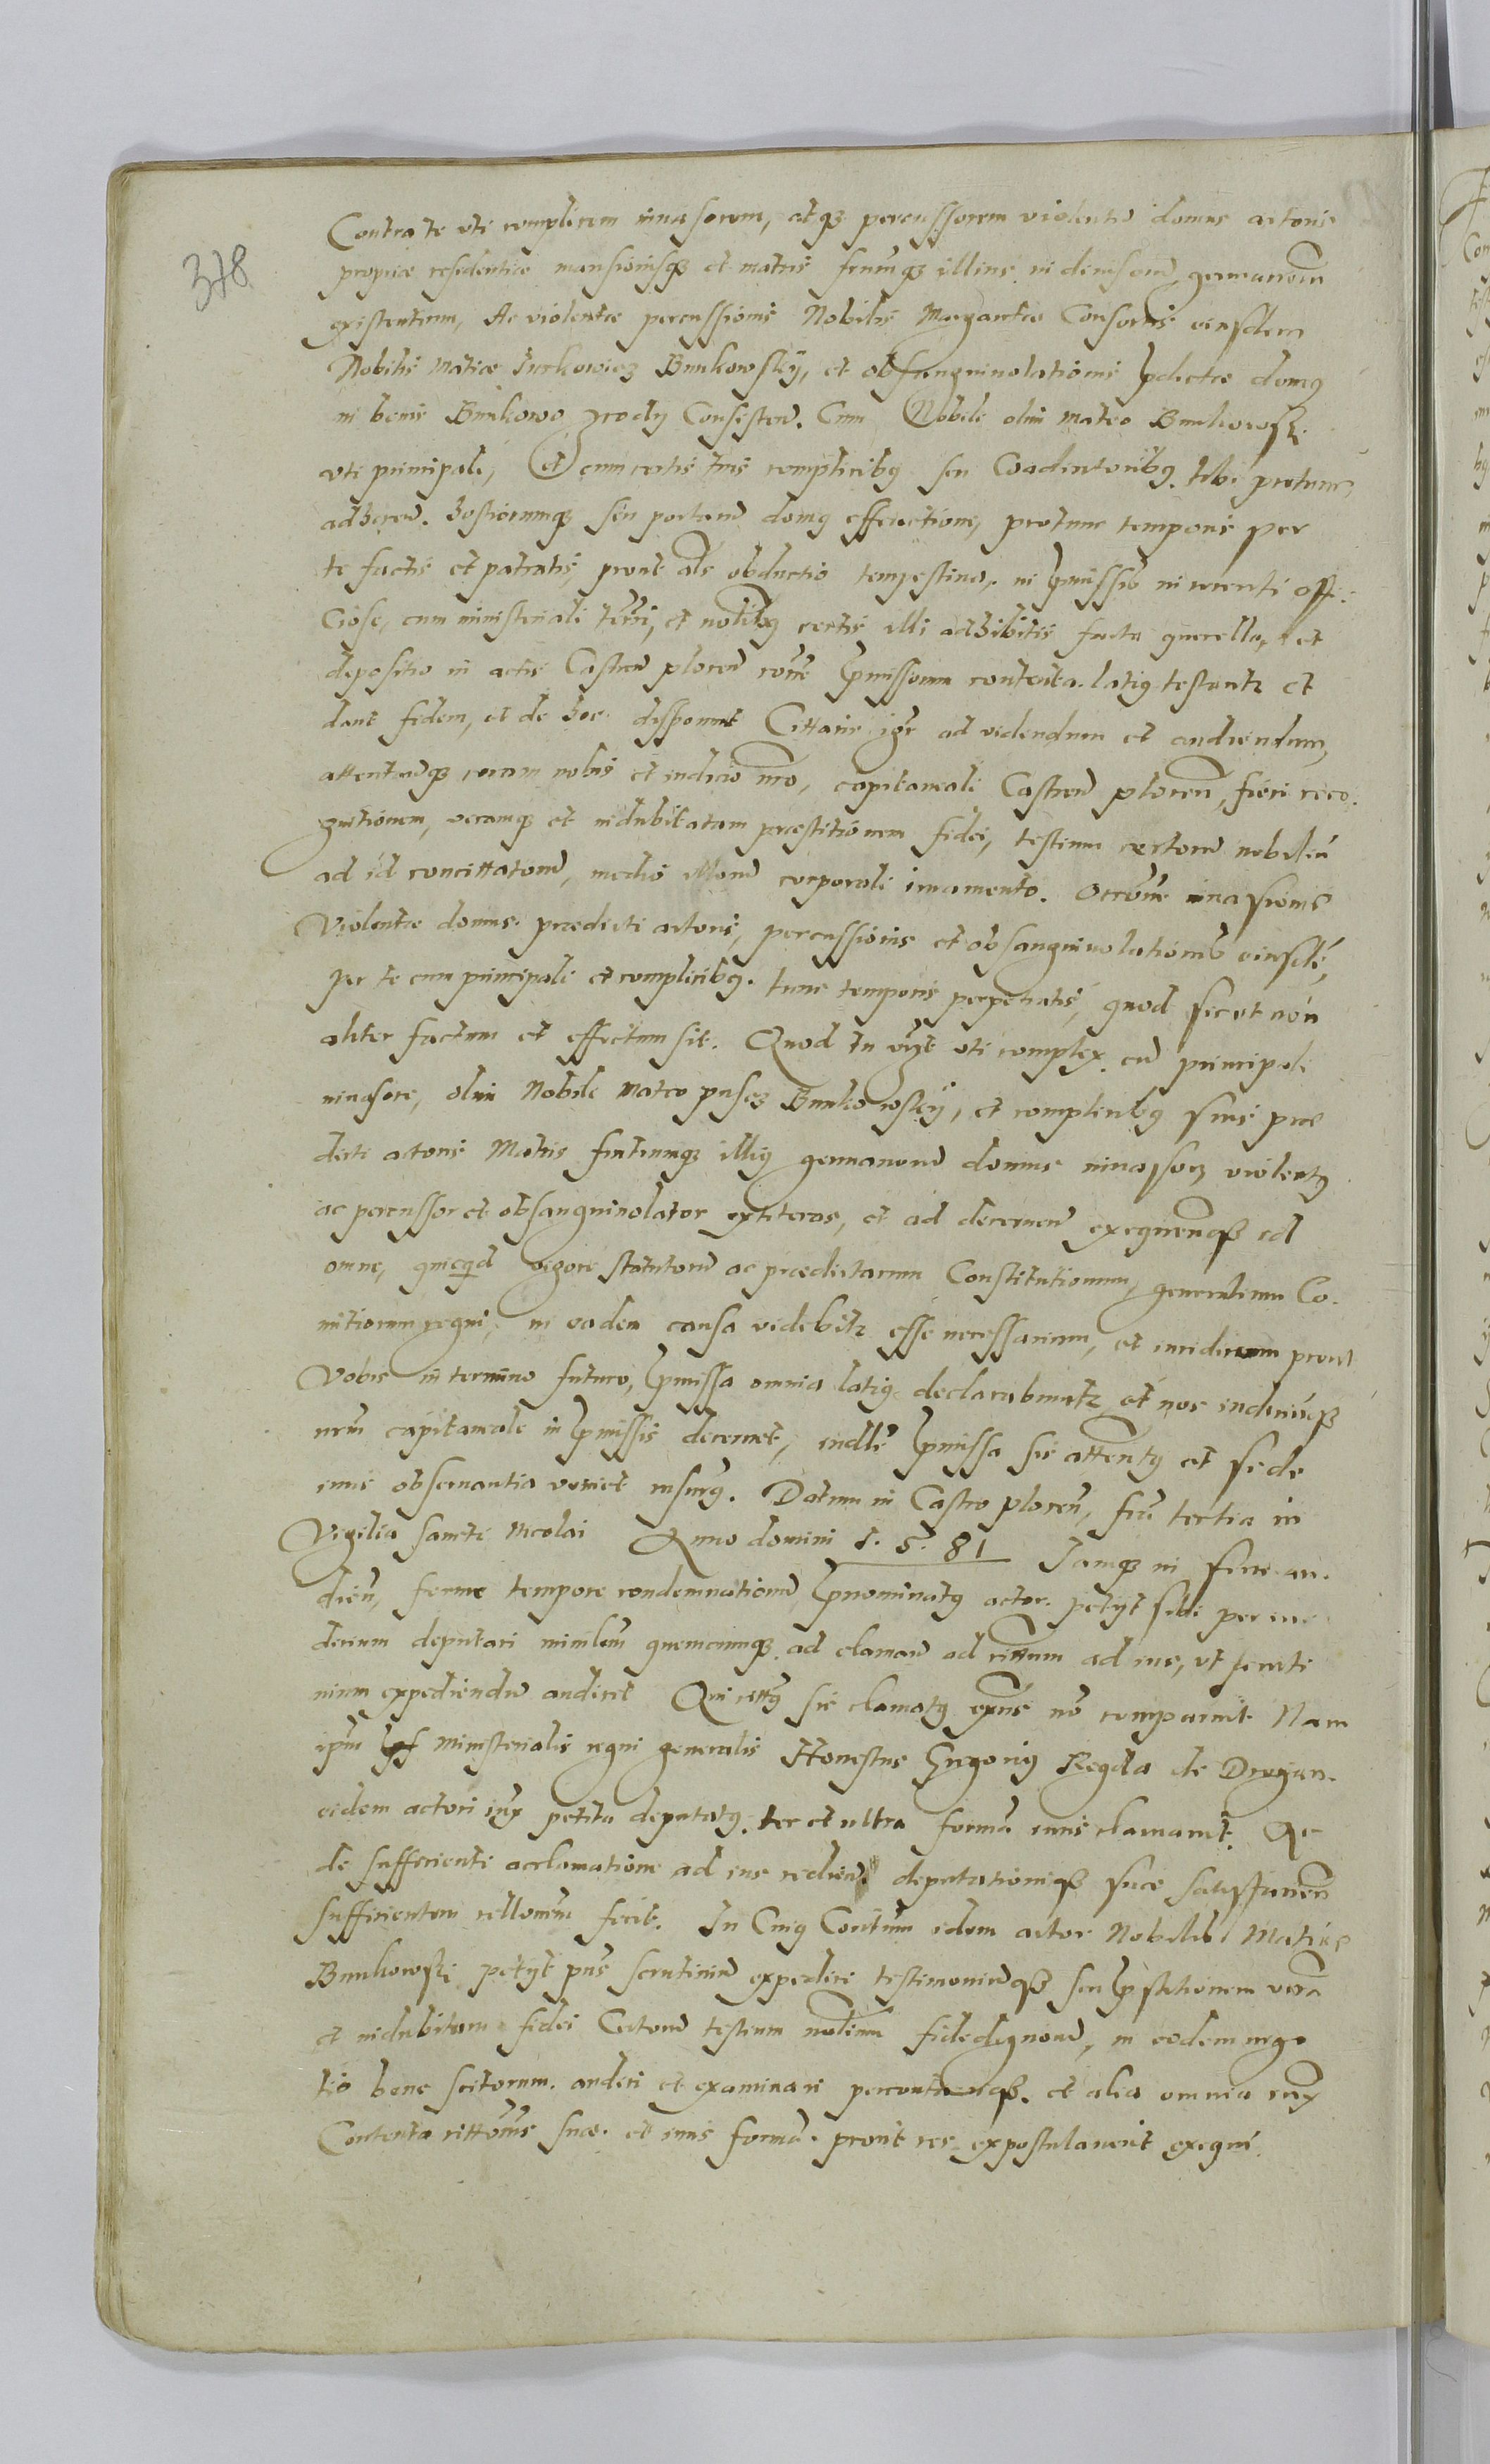 378
Contra te uti complicem invasorem, atq3 percussorem violentu domus actoris
propriae residentiae mansionisq3 et matris frumq3 illius indivisoru germanoru
existentium, Ac violentae percussionis Nobilis Margarethae Consortis eiusdem
Nobilis Matiae Jurkowicz Bunkowskÿ, et obsanguinolationis pdictae domus
in bonis Bunkowo grody Consisten. Cum Nobile olim Mateo Bunkowski
uti principali, et cum certis tuis complicibus seu Coadiutoribus tibi protunc
adheren. hostiorumq3 seu portaru domus effractione, protunc temporis per
te factis et patratis, prout als obductio tempestiva, in pmissis in recenti offi
ciose, cum ministeriali terri, et nobilibus certis illi adhibitis facta querella, et
depositio in actis Castren plocen rone pmissorum contenta latius testantr et
dant fidem, et de hoc disponunt Cittaris igr ad videndum et audiendum,
attentandq3 coram nobis et iudicio nro, capitaneali Castren plocen, fieri reco
gnitionem, veramq3 et indubitatam praestitionem fidei, testium certoru nobiliu
ad id concittatoru, medio illoru corporali iuramento. Occone invasionis
Violentae domus praedicti actoris, percussionis et obsanguinolationis eiusde,
Per te cum principali et complicibus tunc temporis perpetratis, quod sic et non
aliter factum et effectum sit. Quod tu uti complex cu principali
invasore, olim Nobile Mateo Bunkowskÿ, et complicibus suis prae
dicti actoris Matris fratrumq3 illius germanoru domus invasor violentus
ac percussor et obsanguinolator extiteras, et ad decernen exequenq3 id
omne, quicquid vigore statutoru ac praedictarum Constitutionum, generalium Co
mitiorum regni, in eadem causa videbitr esse necessarium, et iuridicum prout
Vobis in termino futuro, pmissa omnia latius declarabuntr et nos iudiciuq3
nrm capitaneale in pmissis decernet, pmissa sis attentus et sede
iuris observantia veniet Datum in Castro plocen, fria tertia in
Vigilia sancti Nicolai Anno domini 1. 5. 81 Iamq3 in
dien, ferme tempore condemnationu pnominatus actor petyt sibi per iu
dicium deputari minilem quemcunq3 ad claman ad cittum ad ius, ut scruti
nium expediendu audiret Qui cittus sic clamatus non comparuit Nam
ipm Ministerialis regni generalis Honestus Gregorius Regda de
eidem actori iux petita deputatus ter et ultra forma iuris clamavit Ac
de sufficienti acclamatione ad ius redien deputationiq3 suae satisfacien
sufficientem rellonem fecit. In Cuius Contum idem actor Nobilis Matias
Bunkowski petyt pns scrutiniu expediri testimoniuq3 seu pstitionem vera
et indubitam fidei Certoru testium nobilium fidedignoru, in eodem nego
tio bene scitorum audiri et examinari et alia omnia iux
Contenta cittonis suae et iuris forma prout res expostulaverit exequi